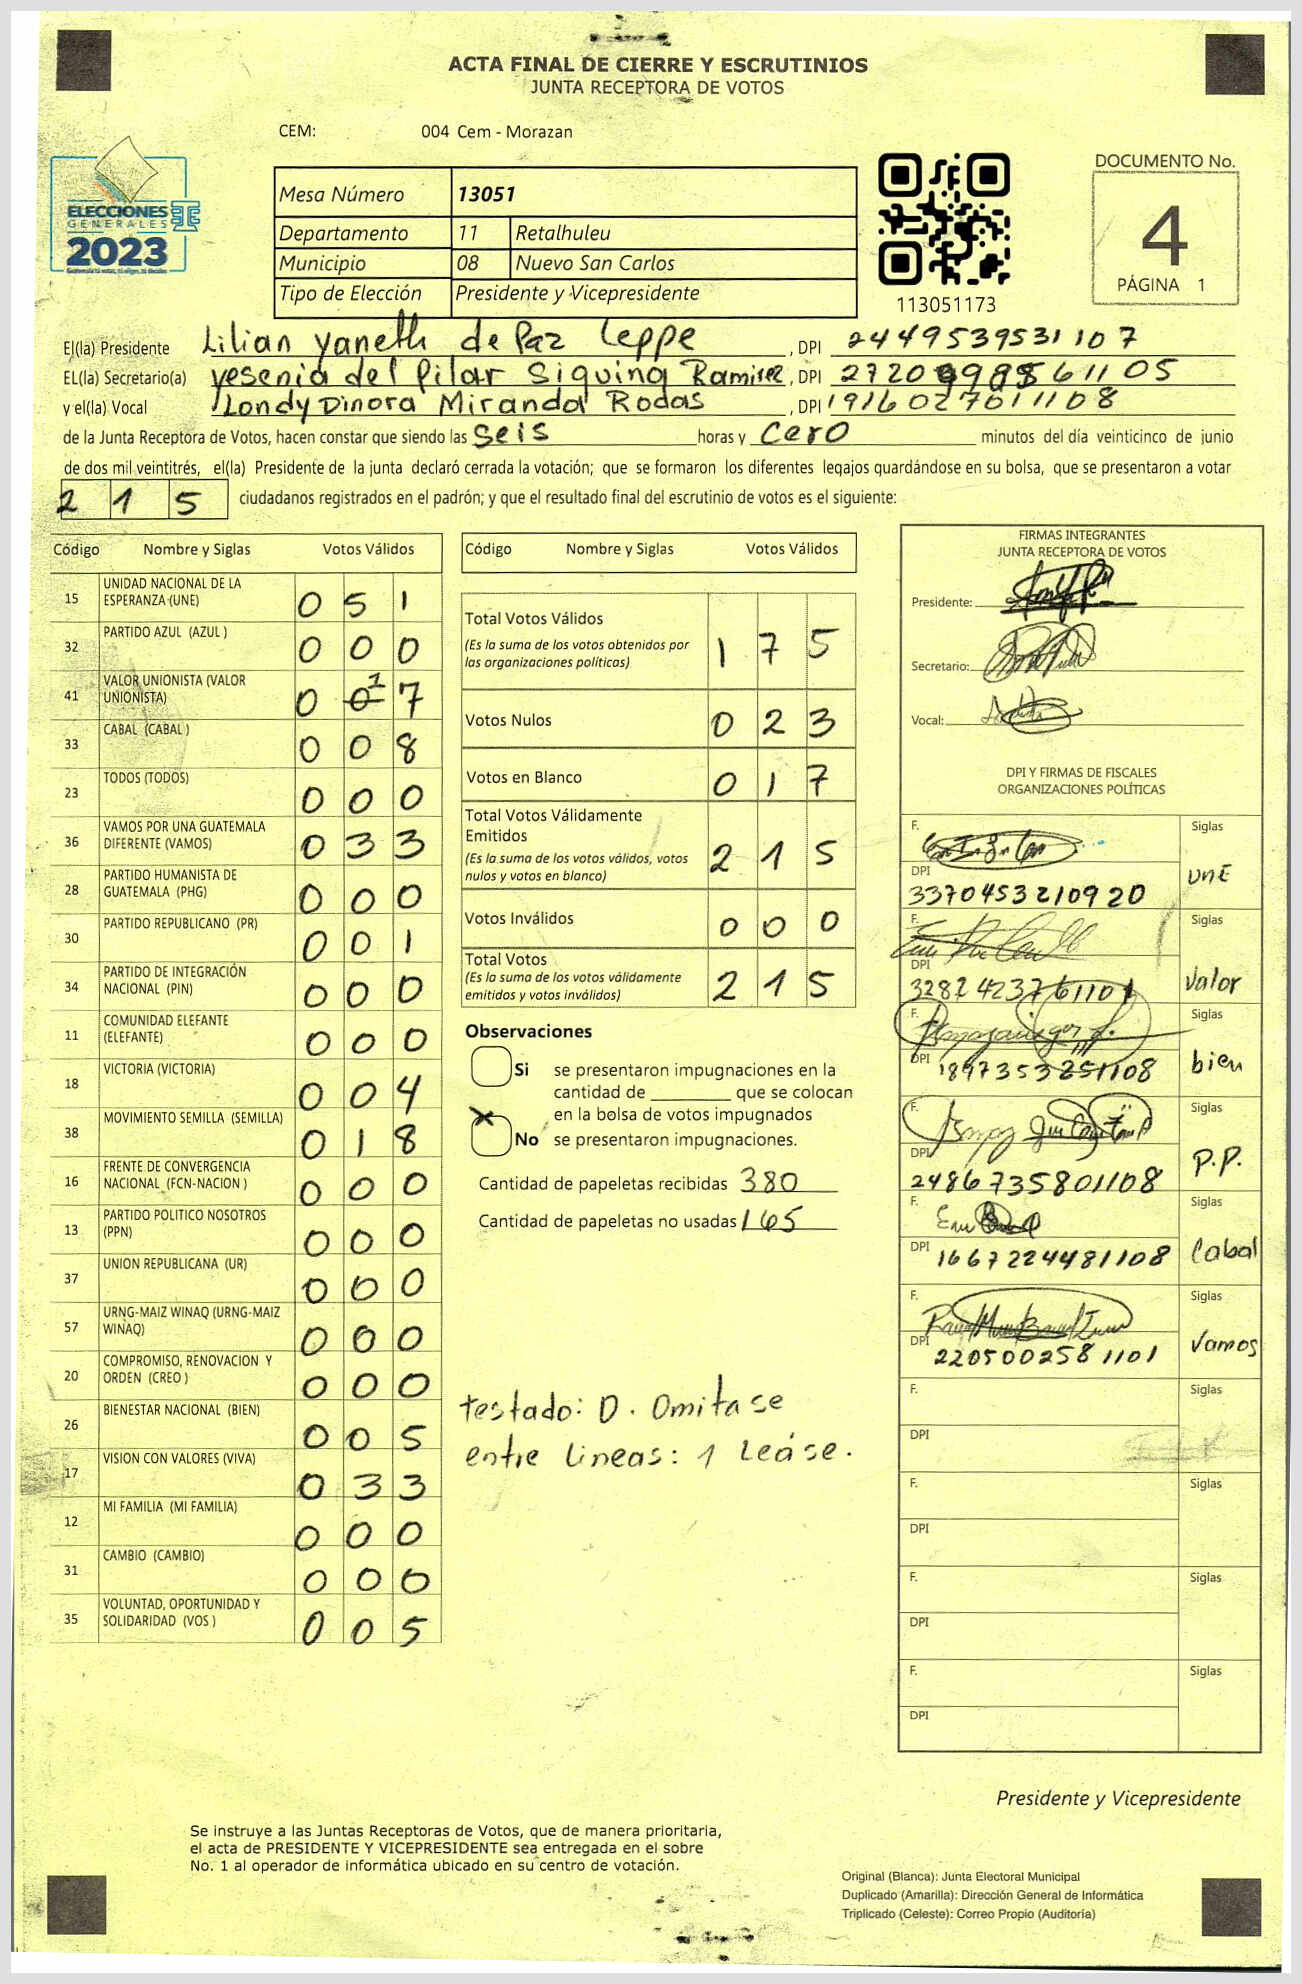 ACTA FINAL DE CIERRE Y ESCRUTINIOS
JUNTA RECEPTORA DE VOTOS
CEM: 004 Cem - Morazan
ELECCIONES
GENERALES
2023
Mesa Número 13051
Departamento 11 Retalhuleu
Municipio 08 Nuevo San Carlos
Tipo de Elección Presidente y Vicepresidente
113051173
DOCUMENTO No.
4
PÁGINA 1
El(la) Presidente Lilian Yaneth de Paz Leppe, DPI 2449539531107
EL(la) Secretario(a) Yesenia del Pilar Siquina Ramirez, DPI
y el(la) Vocal Londy Dinora Miranda Rodas, DPI 1916027011108
de la Junta Receptora de Votos, hacen constar que siendo las seis horas y cero minutos del día veinticinco de junio
de dos mil veintitrés, el(la) Presidente de la junta declaró cerrada la votación; que se formaron los diferentes legajos quardándose en su bolsa, que se presentaron a votar
215 ciudadanos registrados en el padrón; y que el resultado final del escrutinio de votos es el siguiente:
Código Nombre y Siglas Votos Válidos
15 UNIDAD NACIONAL DE LA
ESPERANZA (UNE) 0 5 1
32 PARTIDO AZUL (AZUL ) 0 0 0
41 VALOR UNIONISTA (VALOR
UNIONISTA) 0 0 1 7
33 CABAL (CABAL ) 0 0 8
23 TODOS (TODOS) 0 0 0
36 VAMOS POR UNA GUATEMALA
DIFERENTE (VAMOS) 0 3 3
28 PARTIDO HUMANISTA DE
GUATEMALA (PHG) 0 0 0
30 PARTIDO REPUBLICANO (PR) 0 0 1
34 PARTIDO DE INTEGRACIÓN
NACIONAL (PIN) 0 0 0
11 COMUNIDAD ELEFANTE
(ELEFANTE) 0 0 0
18 VICTORIA (VICTORIA) 0 0 4
38 MOVIMIENTO SEMILLA (SEMILLA) 0 1 8
16 FRENTE DE CONVERGENCIA
NACIONAL (FCN-NACION ) 0 0 0
13 PARTIDO POLITICO NOSOTROS
(PPN) 0 0 0
37 UNION REPUBLICANA (UR) 0 0 0
57 URNG-MAIZ WINAQ (URNG-MAIZ
WINAQ) 0 0 0
20 COMPROMISO, RENOVACION Y
ORDEN (CREO ) 0 0 0
26 BIENESTAR NACIONAL (BIEN) 0 0 5
17 VISION CON VALORES (VIVA) 0 3 3
12 MI FAMILIA (MI FAMILIA) 0 0 0
31 CAMBIO (CAMBIO) 0 0 0
35 VOLUNTAD, OPORTUNIDAD Y
SOLIDARIDAD (VOS ) 0 0 5
Código Nombre y Siglas Votos Válidos
Total Votos Válidos 1 7 5
(Es la suma de los votos obtenidos por
las organizaciones políticas)
Votos Nulos 0 2 3
Votos en Blanco 0 1 7
Total Votos Válidamente
Emitidos 2 1 5
(Es la suma de los votos válidos, votos
nulos y votos en blanco)
Votos Inválidos 0 0 0
Total Votos 2 1 5
(Es la suma de los votos válidamente
emitidos y votos inválidos)
Observaciones
Si se presentaron impugnaciones en la
cantidad de ________ que se colocan
en la bolsa de votos impugnados
X No se presentaron impugnaciones.
Cantidad de papeletas recibidas 380
Cantidad de papeletas no usadas 165
testado: 0. Omitase
entre lineas: 1 Leáse.
FIRMAS INTEGRANTES
JUNTA RECEPTORA DE VOTOS
Presidente:
Secretario:
Vocal:
DPI Y FIRMAS DE FISCALES
ORGANIZACIONES POLÍTICAS
F. Siglas
DPI 3370453210920 UNE
F. Siglas
DPI 3287423761101 Valor
F. Siglas
DPI 1897353251108 bien
F. Siglas
DPI 2486735801108 P.P.
F. Siglas
DPI 1667224481108 Cabal
F. Siglas
DPI 2205000258 1101 Vamos
F. Siglas
DPI
F. Siglas
DPI
F. Siglas
DPI
F. Siglas
DPI
Presidente y Vicepresidente
Se instruye a las Juntas Receptoras de Votos, que de manera prioritaria,
el acta de PRESIDENTE Y VICEPRESIDENTE sea entregada en el sobre
No. 1 al operador de informática ubicado en su centro de votación.
Original (Blanca): Junta Electoral Municipal
Duplicado (Amarilla): Dirección General de Informática
Triplicado (Celeste): Correo Propio (Auditoría)